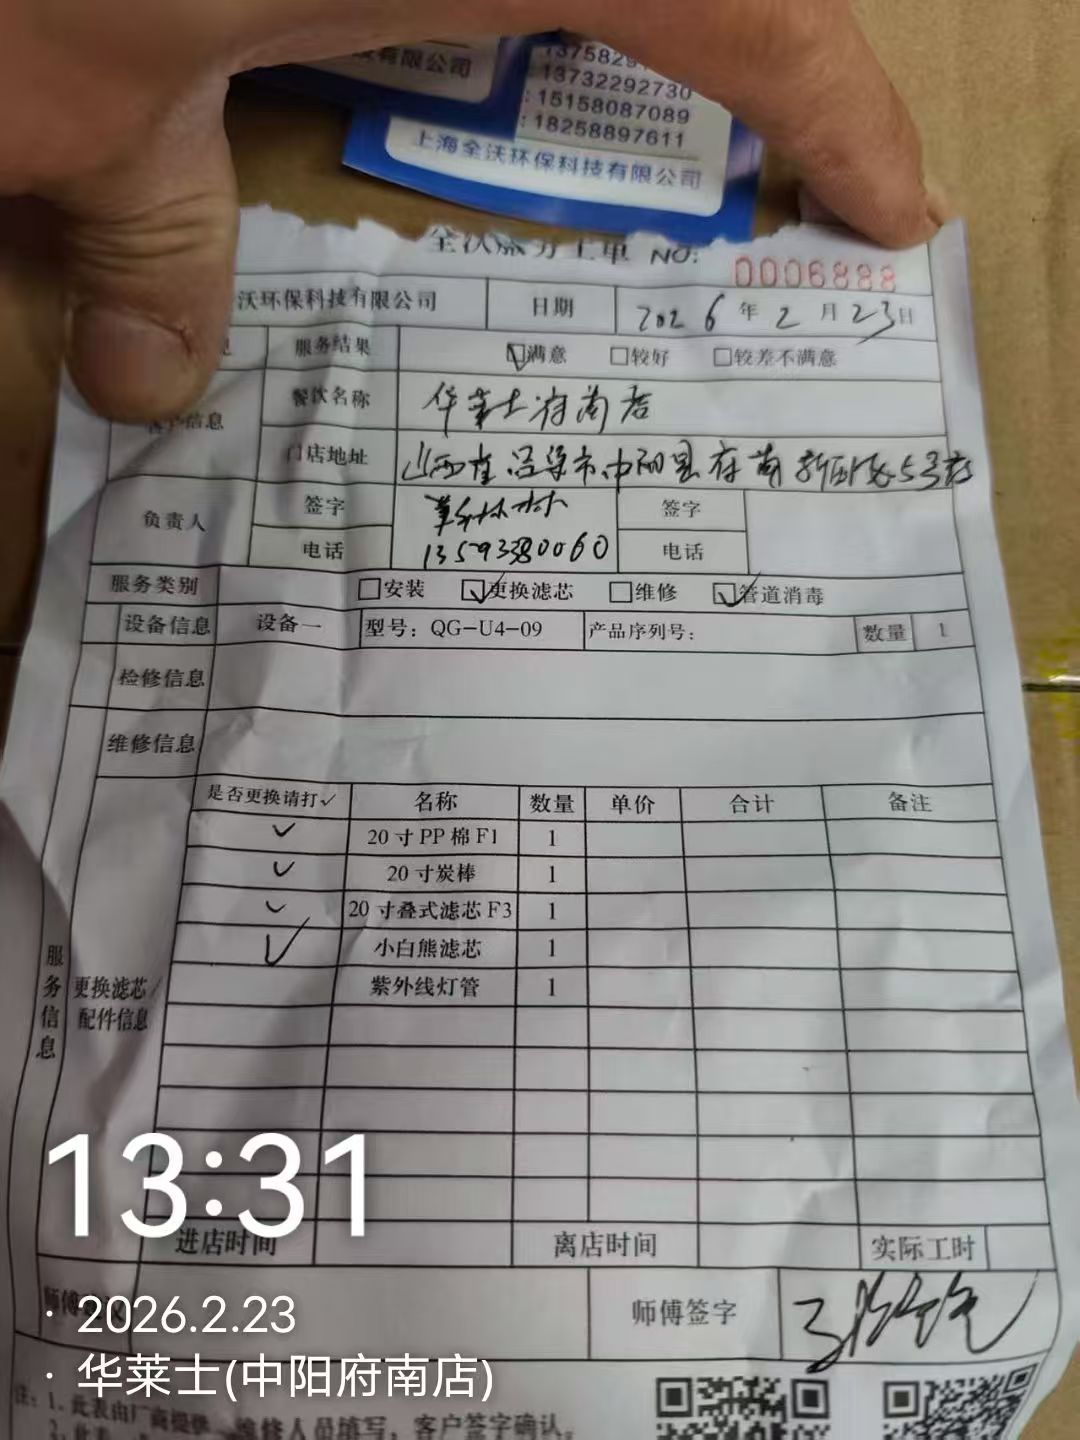 有限公司
13732292730
15158087089
18258897611
上海全沃环保科技有限公司
全沃服务工单 NO: 0006888
沃环保科技有限公司 日期 2026年2月23日
服务结果 满意 较好 较差不满意
客户信息 餐饮名称 华莱士府南店
门店地址 山西省吕梁市中阳县府南新区5号店
负责人 签字 签字
电话 13593380060 电话
服务类别 安装 更换滤芯 维修 管道消毒
设备信息 设备一 型号：QG-U4-09 产品序列号： 数量 1
检修信息
维修信息
是否更换请打✓ 名称 数量 单价 合计 备注
✓ 20寸PP棉F1 1
✓ 20寸炭棒 1
✓ 20寸叠式滤芯F3 1
✓ 小白熊滤芯 1
紫外线灯管 1
服务信息
更换滤芯/
配件信息
13:31
进店时间 离店时间 实际工时
师傅签字
· 2026.2.23
· 华莱士(中阳府南店)
注：1.此表由厂商提供 维修人员填写，客户签字确认。